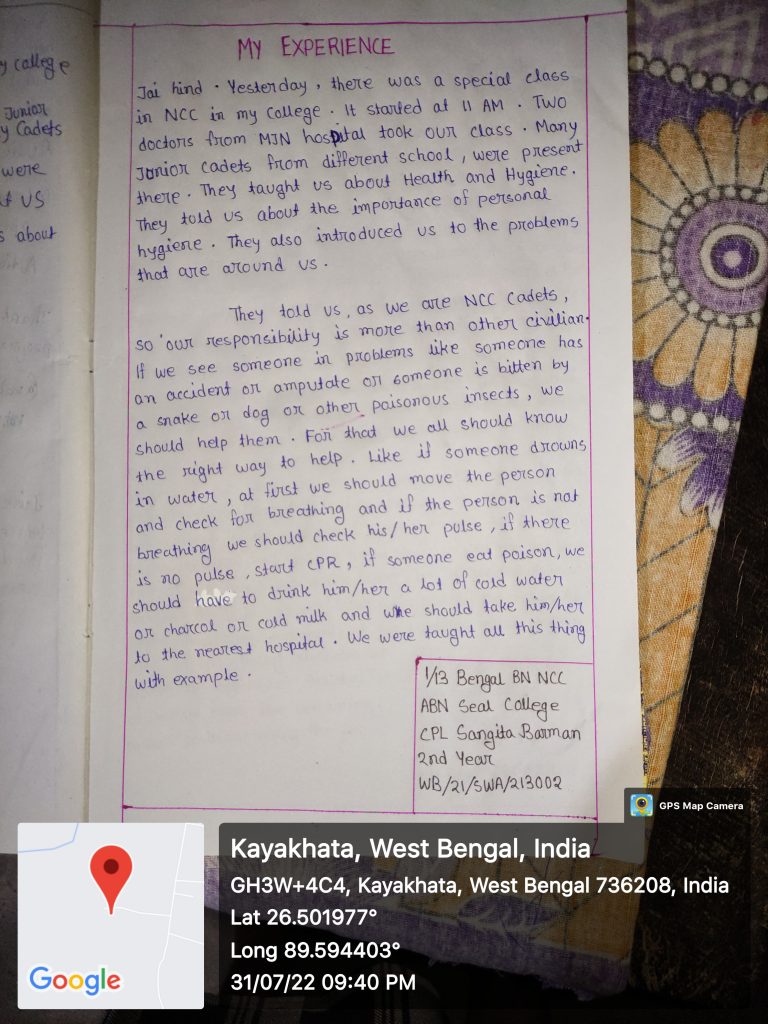 y college
Junior
y Cadets
were
t us
s about
MY EXPERIENCE
Jai hind. Yesterday, there was a special class
in NCC in my College. It started at 11 AM. Two
doctors from MJN hospital took our class. Many
Junior Cadets from different school, were present
there. They taught us about Health and Hygiene.
They told us about the importance of personal
hygiene. They also introduced us to the problems
that are around us.
They told us, as we are NCC Cadets,
so 'our responsibility is more than other civilian.
If we see someone in problems like someone has
an accident or amputate or someone is bitten by
a snake or dog or other poisonous insects, we
should help them. For that we all should know
the right way to help. Like if someone drowns
in water, at first we should move the person
and check for breathing and if the person is not
breathing we should check his/her pulse, if there
is no pulse, start CPR, if someone eat poison, we
should have to drink him/her a lot of cold water
or charcol or cold milk and we should take him/her
to the nearest hospital. We were taught all this thing
with example.
1/13 Bengal BN NCC
ABN Seal College
CPL Sangita Barman
2nd Year
WB/21/SWA/213002
GPS Map Camera
Kayakhata, West Bengal, India
GH3W+4C4, Kayakhata, West Bengal 736208, India
Lat 26.501977°
Long 89.594403°
31/07/22 09:40 PM
Google